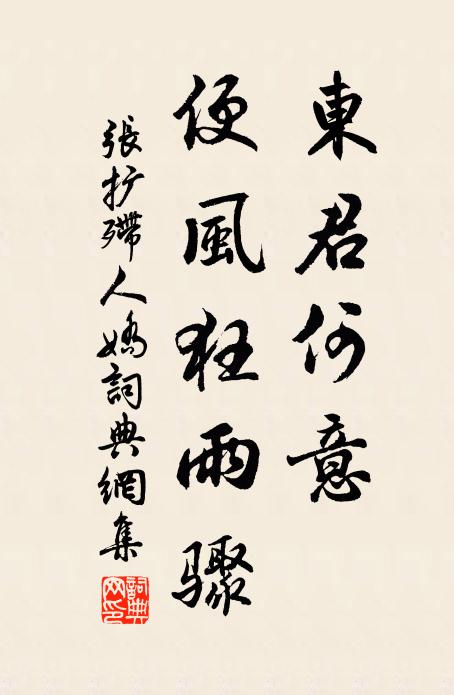 東君何意
便風狂雨驟
張扩殢人嬌詞典網集
詞典
网印